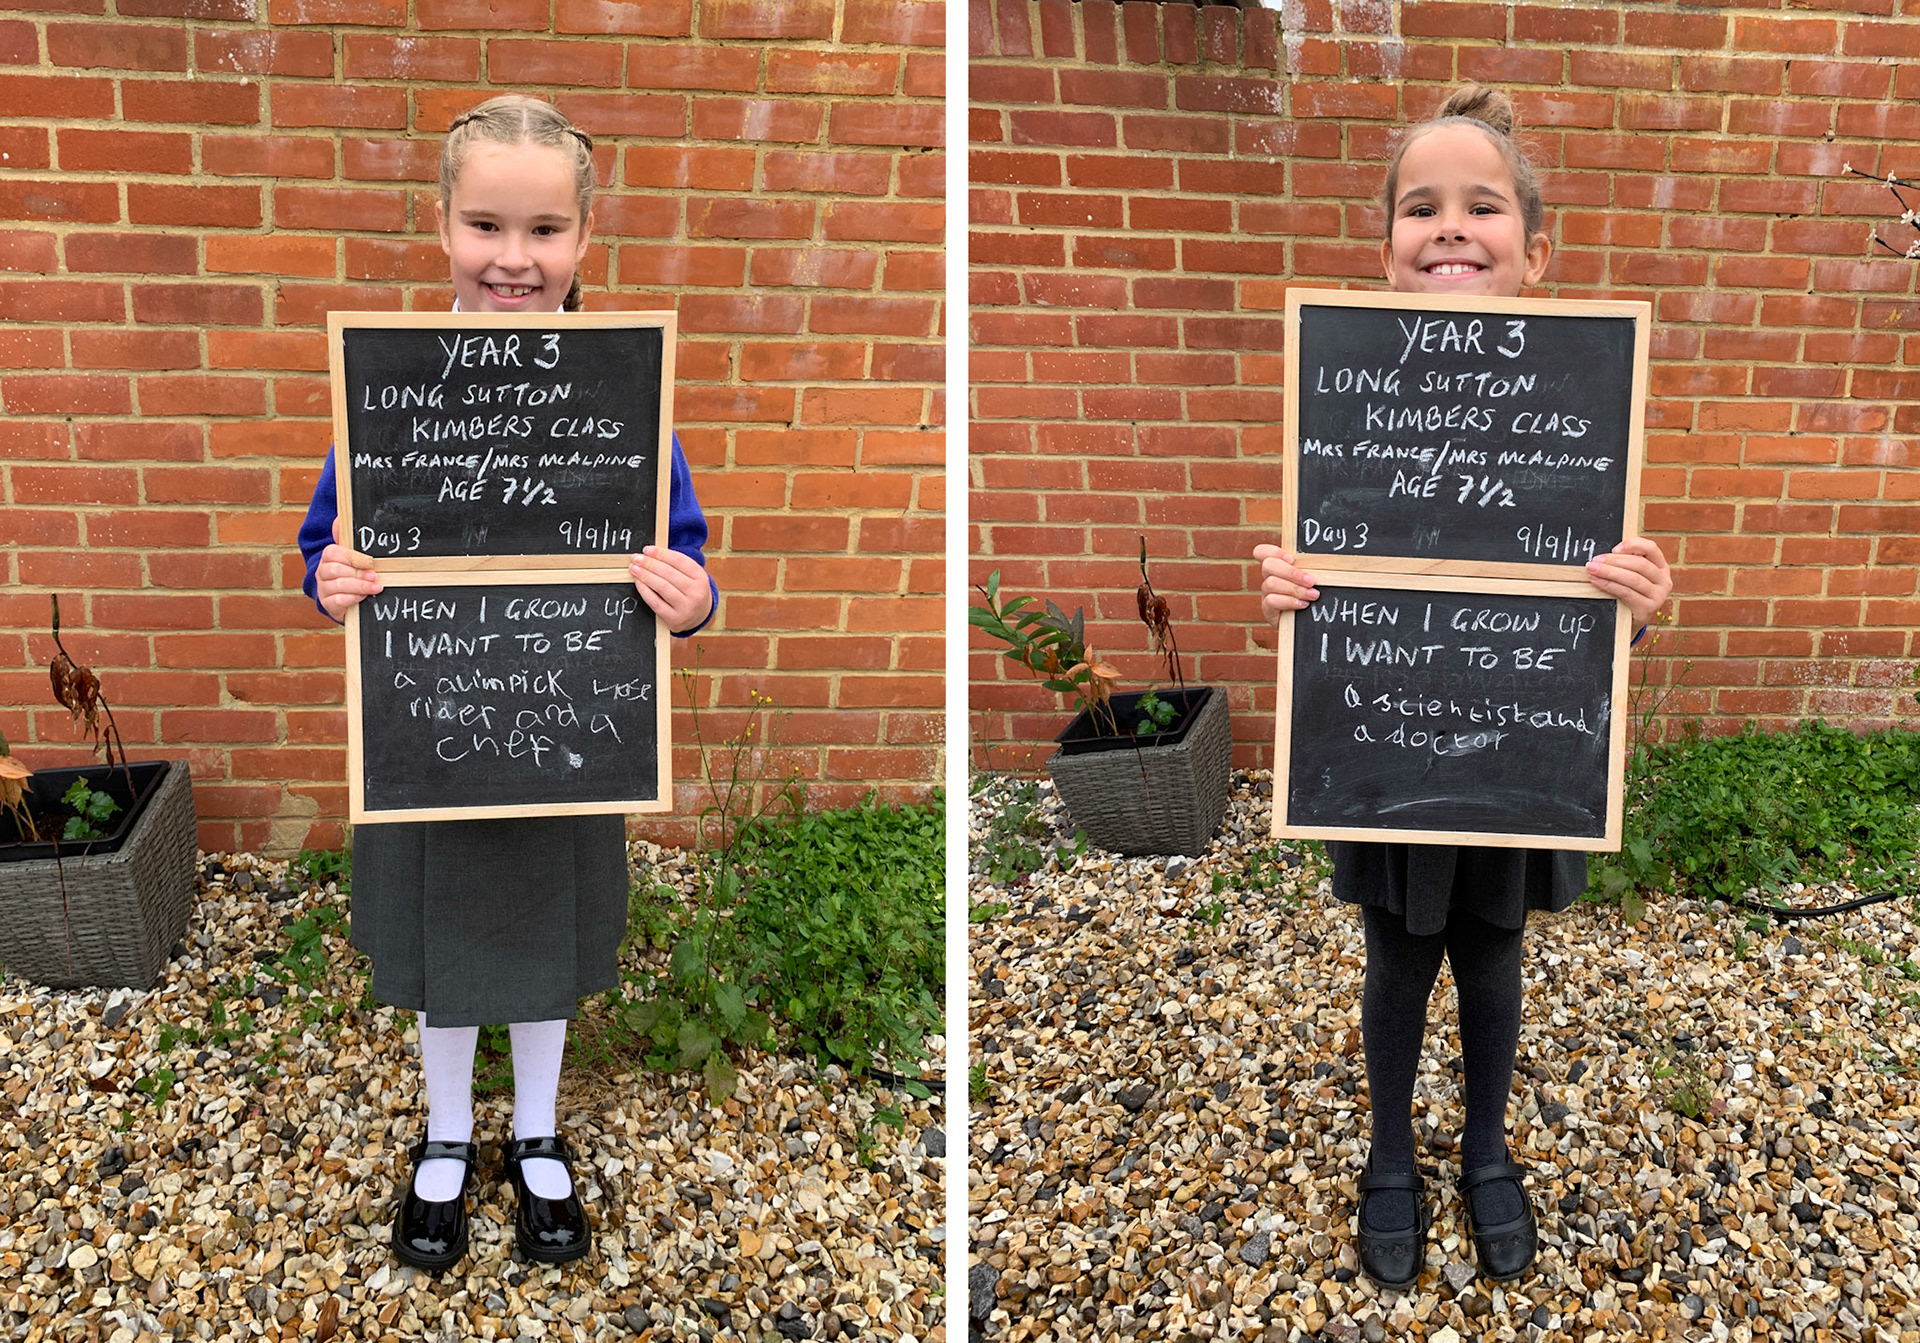 YEAR 3
LONG SUTTON
KIMBERS CLASS
MRS FRANCE/MRS MCALPINE
AGE 7 1/2
Day 3 9/9/19
WHEN I GROW UP
I WANT TO BE
a alimpick
rider and a
chef.
YEAR 3
LONG SUTTON
KIMBERS CLASS
MRS FRANCE/MRS MCALPINE
AGE 7 1/2
Day 3 9/9/19
WHEN I GROW UP
I WANT TO BE
a scientist and
a doctor